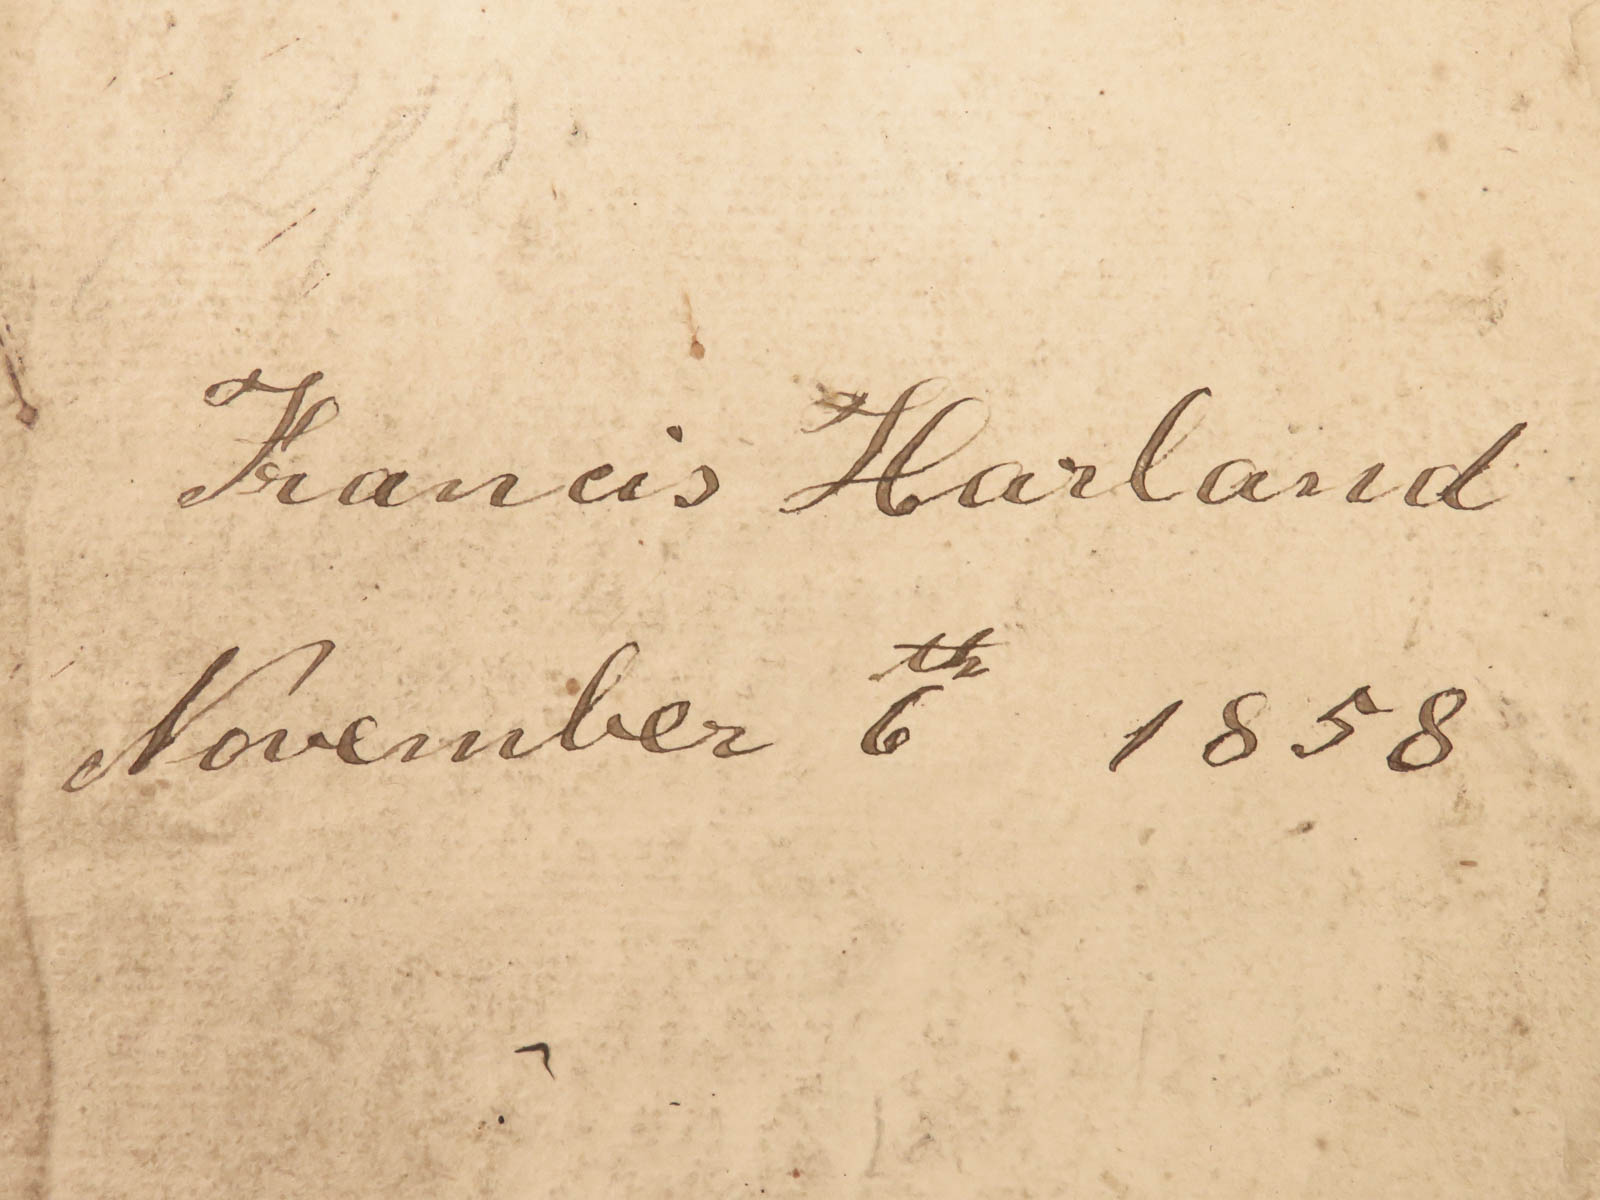 Francis Harland
November 6th 1858